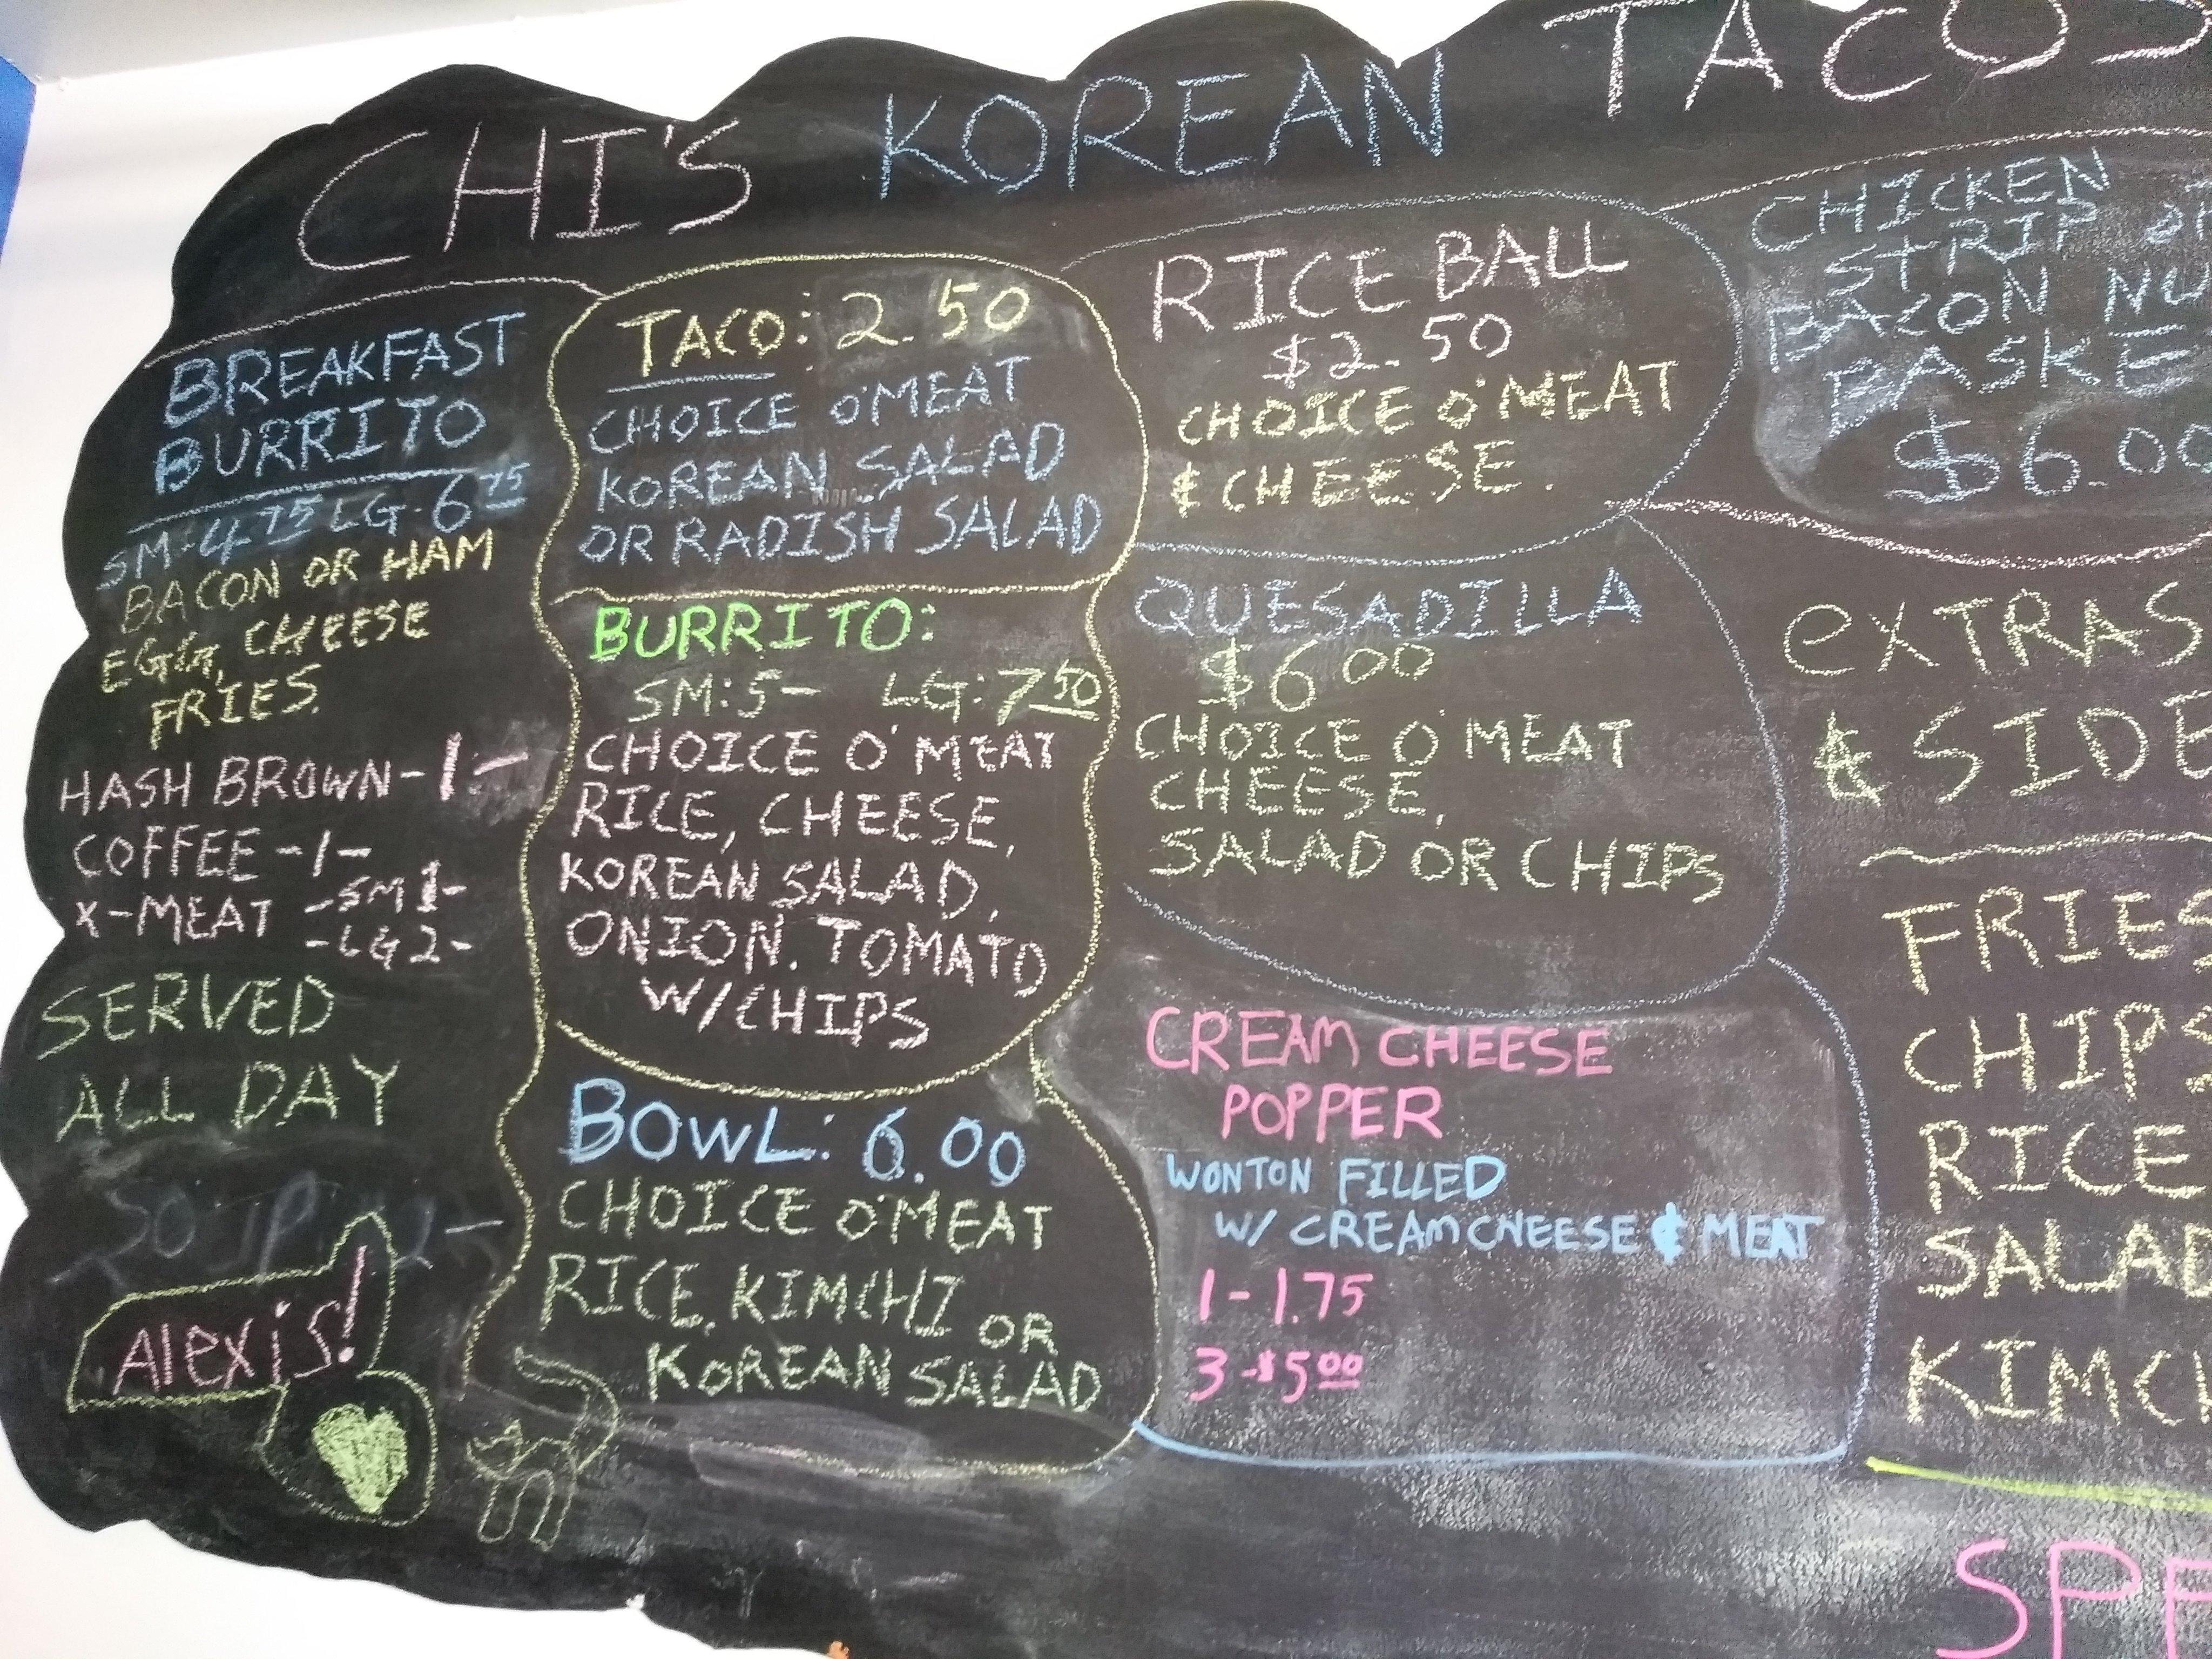 CHI'S KOREAN TACOS
BREAKFAST
BURRITO
SM: 4.75 LG. 6.75
BACON OR HAM
EGG, CHEESE
FRIES.
HASH BROWN - 1 -
COFFEE - 1 -
X-MEAT - SM 1 -
- LG 2 -
SERVED
ALL DAY
Alexis!
TACO: 2.50
CHOICE O'MEAT
KOREAN SALAD
OR RADISH SALAD
BURRITO:
SM: 5- LG: 7 50
CHOICE O'MEAT
RICE, CHEESE,
KOREAN SALAD,
ONION. TOMATO
W/CHIPS
BOWL: 6.00
CHOICE O'MEAT
RICE, KIMCHI OR
KOREAN SALAD
RICE BALL
$2.50
CHOICE O'MEAT
& CHEESE.
QUESADILLA
$6 00
CHOICE O'MEAT
CHEESE,
SALAD OR CHIPS
CREAM CHEESE
POPPER
WONTON FILLED
W/ CREAM CHEESE & MEAT
1 - 1.75
3 - $5 00
CHICKEN
STRIP
BACON
$6.00
EXTRAS
&
FRIES
CHIPS
RICE
SALAD